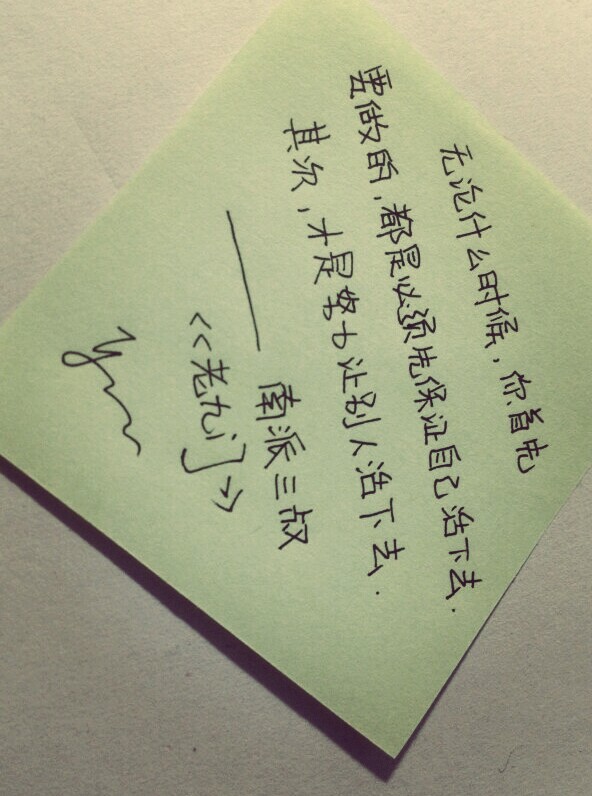 无论什么时候，你首先
要做的，都是必须先保证自己活下去.
其次，才是努力让别人活下去.
——南派三叔
<<老九门>>